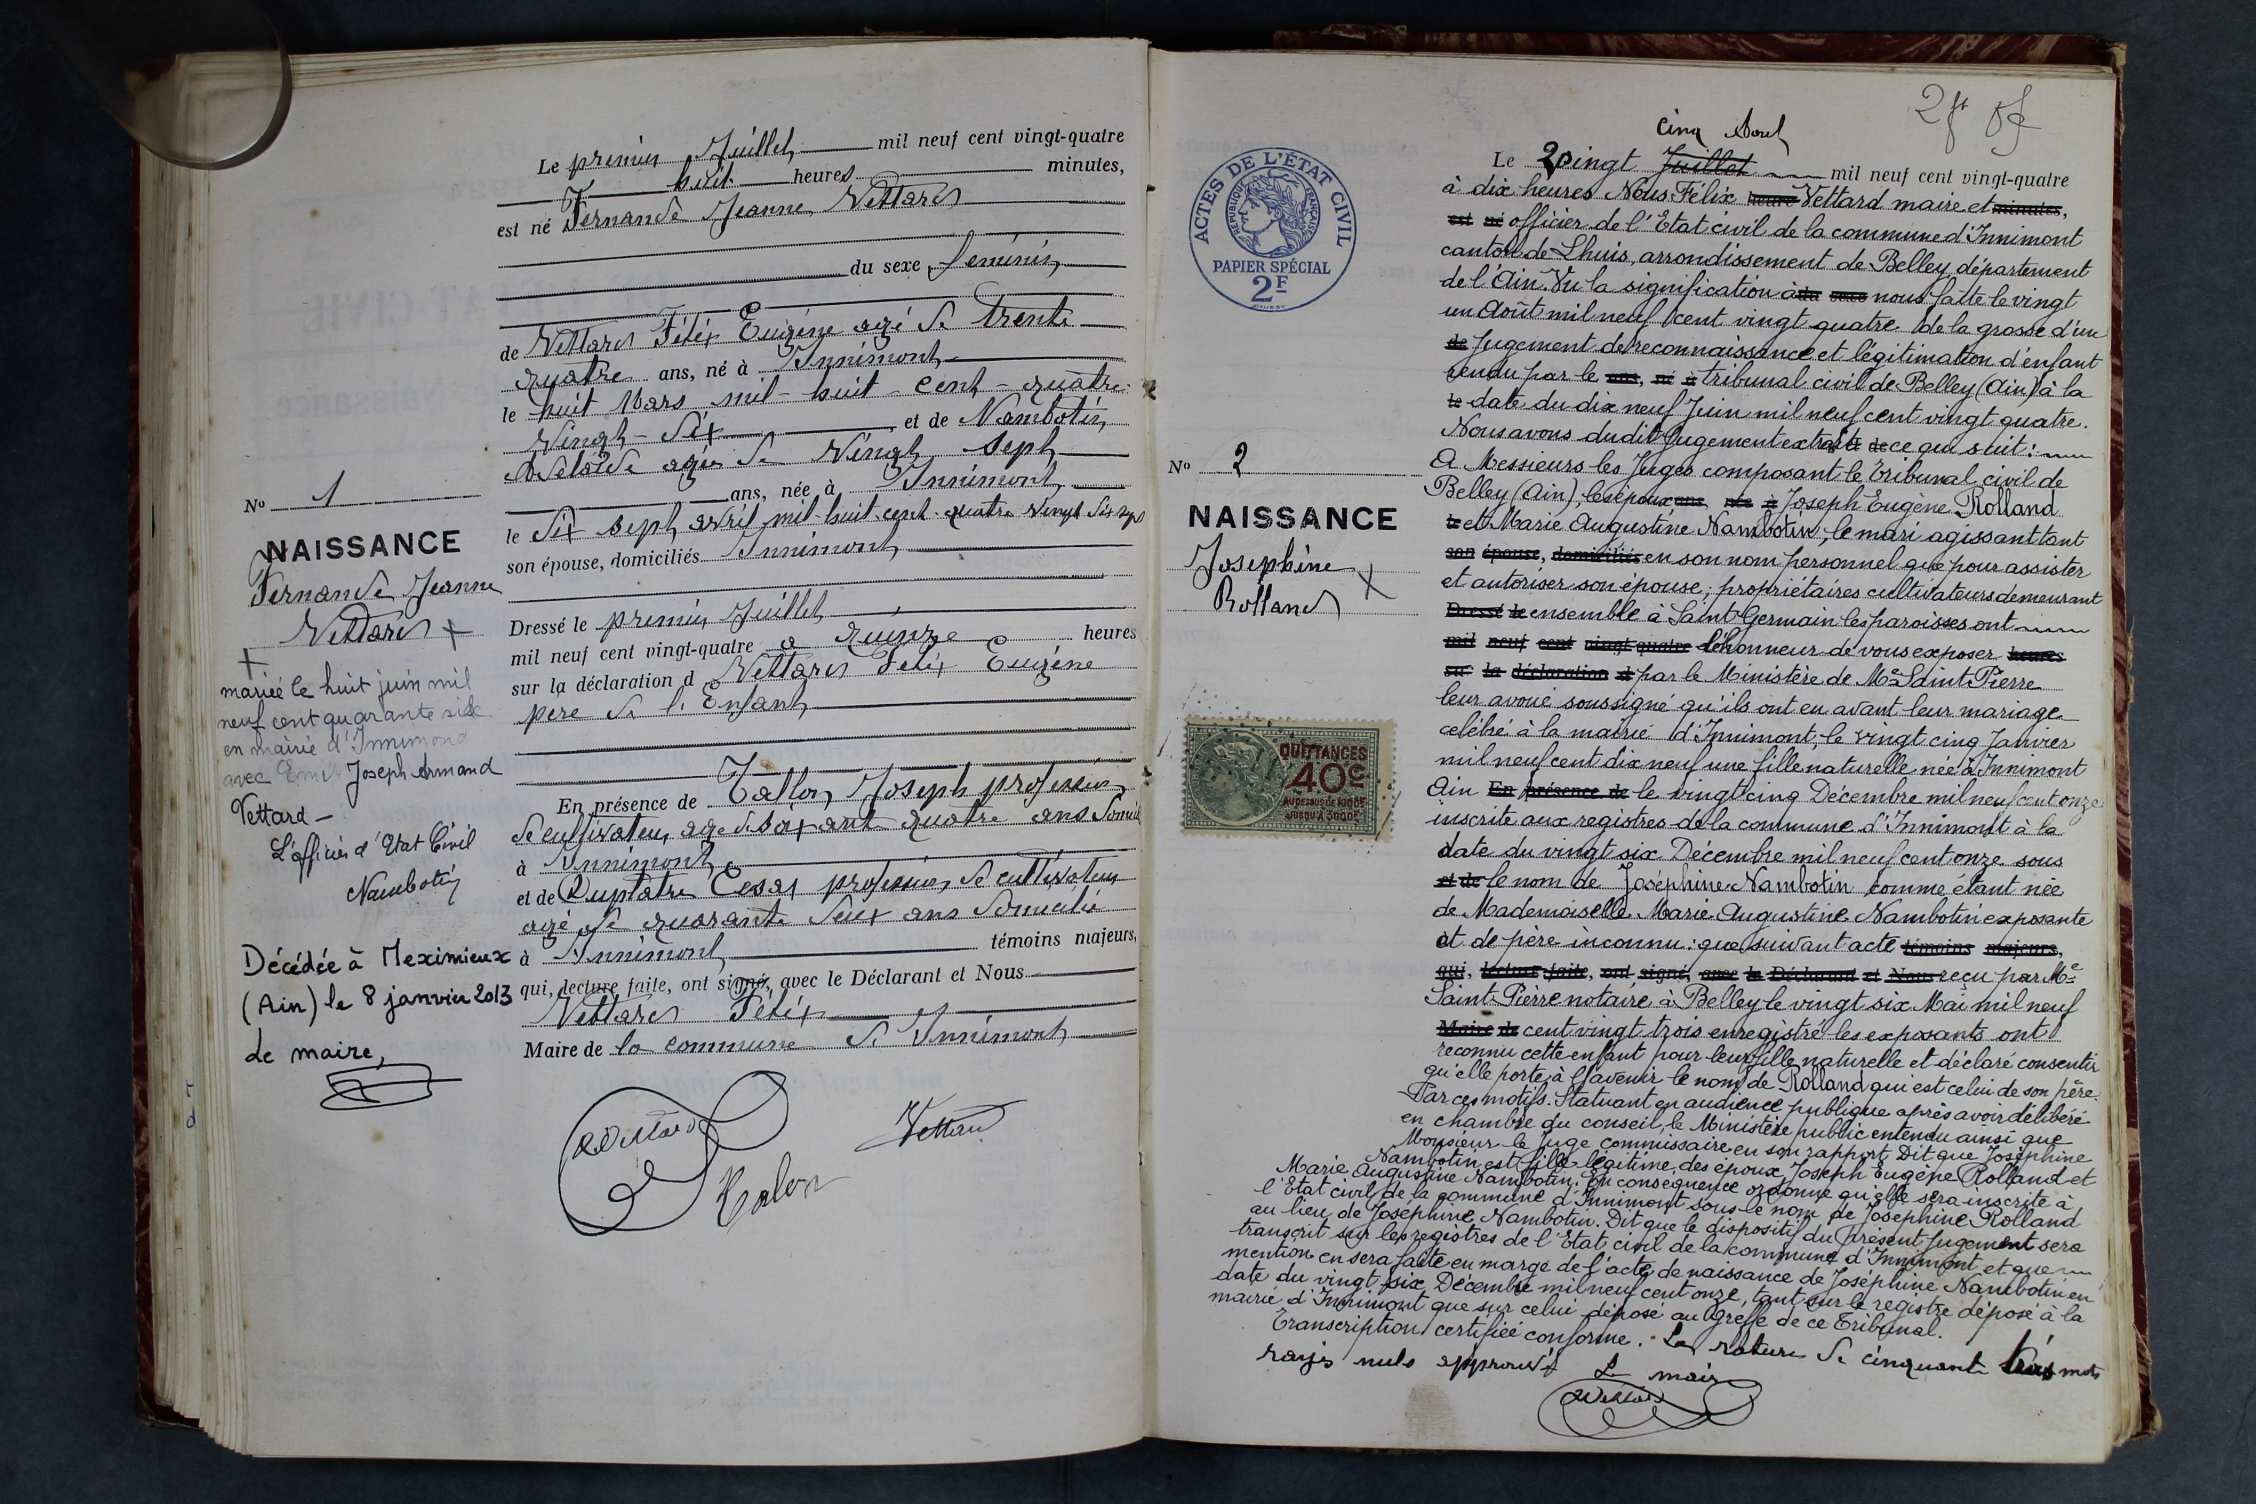 Le premier Juillet mil neuf cent vingt-quatre
huit heures minutes,
est né Fernande Jeanne Vettard
du sexe féminin
de Vettard Félix Eugène agé de trente
quatre ans, né à Innimont
le huit Mars mil-huit-cent-quatre-
Vingt-Six et de Nambotin
Adélaïde agée de Vingt Sept
ans, née à Innimont
le Six sept avril mil-huit-cent-quatre vingt dix sept
son épouse, domiciliés Innimont
Dressé le premier Juillet
mil neuf cent vingt-quatre à quinze heures
sur la déclaration d Vettard Félix Eugène
père de l'Enfant
En présence de Tallon Joseph profession
de cultivateur agé de soixante quatre ans domicilié
à Innimont
et de César profession de cultivateur
agé de quarante deux ans domicilié
à Innimont témoins majeurs,
qui, lecture faite, ont signé, avec le Déclarant et Nous
Vettard Félix
Maire de la commune de Innimont
Vettard
Talon
Vettard
No 1
NAISSANCE
Fernande Jeanne
Vettard +
+
mariée le huit juin mil
neuf cent quarante six
en mairie d'Innimond
avec Joseph Armand
Vettard -
L'officier d'Etat Civil
Nambotin
Décédée à Meximieux
(Ain) le 8 janvier 2013
Le maire,
ACTES DE L'ÉTAT CIVIL
RÉPUBLIQUE FRANÇAISE
PAPIER SPÉCIAL
2F
No 2
NAISSANCE
Josephine
Rolland
X
QUITTANCES
40c
AU DESSUS DE 1000F
JUSQU'A 3000F
cinq Aout
Le vingt Juillet mil neuf cent vingt-quatre
à dix heures Nous Félix heure Vettard maire et minutes,
est né officier de l'Etat civil de la commune d'Innimont
canton de Lhuis, arrondissement de Belley, département
de l'Ain. Vu la signification à du sexe nous faite le vingt
un Août mil neuf cent vingt quatre de la grosse d'un
de Jugement de reconnaissance et légitimation d'enfant
rendu par le ans, né à tribunal civil de Belley (Ain) à la
le date du dix neuf Juin mil neuf cent vingt quatre.
Nous avons dudit Jugement extrait et de ce qui suit:
A Messieurs les Juges composant le Tribunal civil de
Belley (Ain), les époux ans, née à Joseph Eugène Rolland
le et Marie Augustine Nambotin, le mari agissant tant
son épouse, domiciliés en son nom personnel que pour assister
et autoriser son épouse; propriétaires cultivateurs demeurant
Dressé le ensemble à Saint-Germain les paroisses ont
mil neuf cent vingt-quatre l'honneur de vous exposer heures
sur la déclaration d par le Ministère de Me Saint Pierre
leur avoué soussigné qu'ils ont eu avant leur mariage
célébré à la mairie d'Innimont, le vingt cinq Janvier
mil neuf cent dix neuf une fille naturelle née à Innimont
Ain En présence de le vingt cinq Décembre mil neuf cent onze
inscrite aux registres de la commune d'Innimont à la
date du vingt six Décembre mil neuf cent onze sous
et de le nom de Joséphine Nambotin comme étant née
de Mademoiselle Marie Augustine Nambotin exposante
et de père inconnu: que suivant acte témoins majeurs,
qui, lecture faite, ont signé, avec le Déclarant et Nous reçu par Me
Saint-Pierre notaire à Belley le vingt six Mai mil neuf
Maire de cent vingt trois enregistré les exposants ont
reconnu cette enfant pour leur fille naturelle et déclaré consentir
qu'elle porte à l'avenir le nom de Rolland qui est celui de son père.
Par ces motifs. Statuant en audience publique après avoir délibéré
en chambre du conseil, le Ministère public entendu ainsi que
Monsieur le Juge commissaire en son rapport Dit que Joséphine
Nambotin est fille légitime des époux Joseph Eugène Rolland et
Marie Augustine Nambotin. En conséquence ordonne qu'elle sera inscrite à
l'Etat civil de la commune d'Innimont sous le nom de Joséphine Rolland
au lieu de Joséphine Nambotin. Dit que le dispositif du présent Jugement sera
transcrit sur les registres de l'Etat civil de la commune d'Innimont et que
mention en sera faite en marge de l'acte de naissance de Joséphine Nambotin en
date du vingt six Décembre mil neuf cent onze, tant sur le registre déposé à la
mairie d'Innimont que sur celui déposé au Greffe de ce Tribunal.
Transcription certifiée conforme. La rature de cinquante trois mots
rayés nuls approuvée Le maire
Vettard